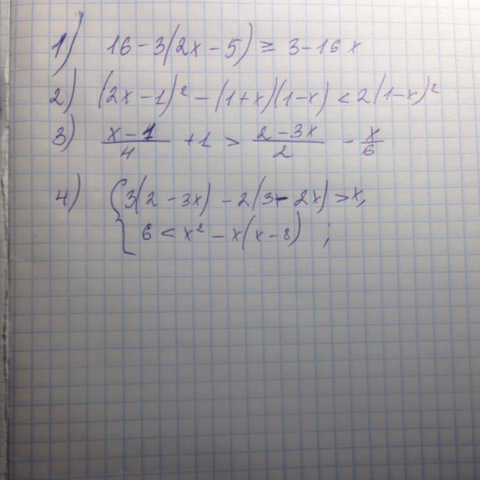 1) 16-3(2x-5) ≥ 3-16x
2) (2x-1)² - (1+x)(1-x) < 2(1-x)²
3) x-1/4 + 1 > 2-3x/2 - x/6
4) { 3(2-3x) - 2(3-2x) > x,
6 < x² - x(x-8) ;